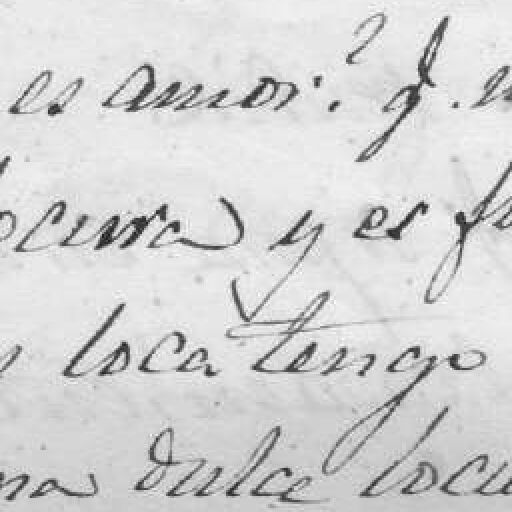 es amor? q.
ocura) y es
loca tengo
na dulce locu